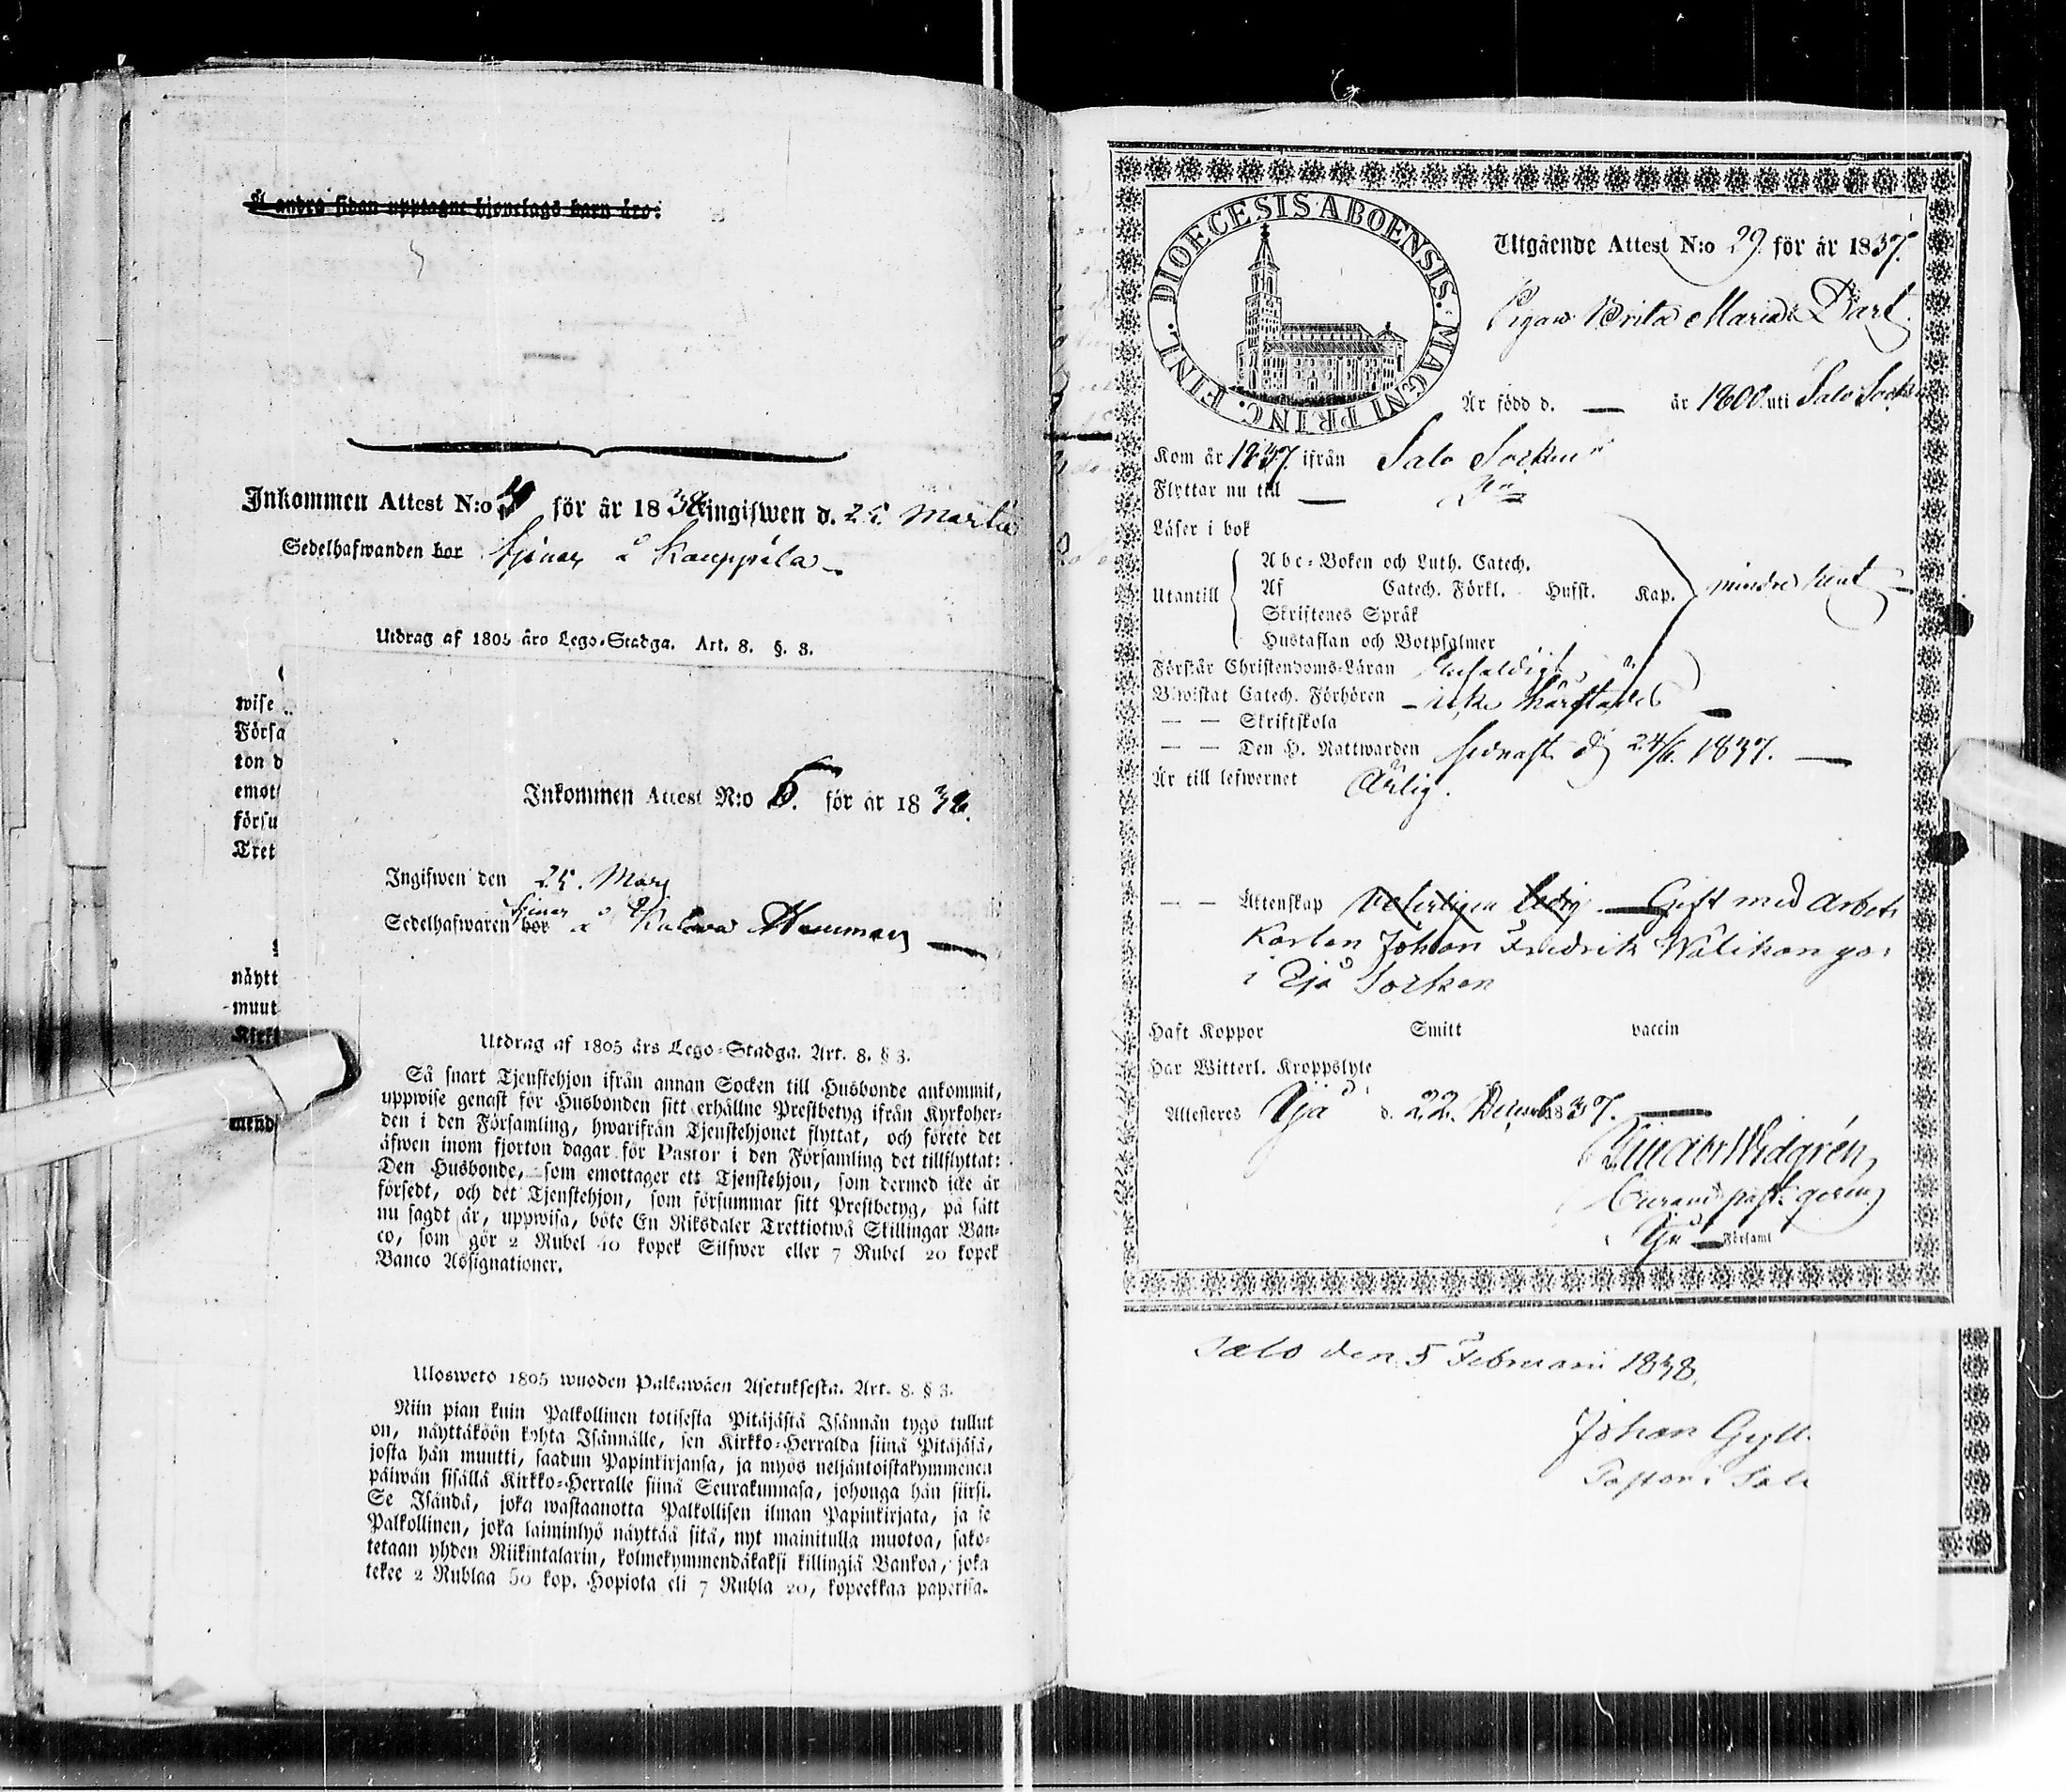 Å andra sidan upptagne hjonelags barn äro:
Inkommen Attest N:o för år 1838 ingifwen d. 25. Martii
Sedelhafwanden bor tjenar å Kauppila
Utdrag af 1805 års Lego-Stadga. Art. 8. §. 3.
wise
Förſa
ton d
emot
förſu
Tret
Inkommen Attest N:o 6. för år 1838.
Ingifwen den 25. Mars
tjenar
Sedelhafwaren bor å Hemman
näytt
muut
Kirk
mend
Utdrag af 1805 års Lego-Stadga. Art. 8. § 3.
Så ſnart Tjenſtehjon ifrån annan Socken till Husbonde ankommit,
uppwiſe genaſt för Husbonden ſitt erhållne Preſtbetyg ifrån Kyrkoher-
den i den Förſamling, hwarifrån Tjenſtehjonet flyttat, och förete det
äfwen inom fjorton dagar för Pastor i den Förſamling det tillflyttat:
Den Husbonde, ſom emottager ett Tjenſtehjon, ſom dermed icke är
förſedt, och det Tjenſtehjon, ſom förſummar ſitt Preſtbetyg, på ſätt
nu ſagdt är, uppwiſa, böte En Riksdaler Trettiotwå Skillingar Ban-
co, ſom gör 2 Rubel 40 kopek Silfwer eller 7 Rubel 20 kopek
Banco Aſſignationer.
Ulosweto 1805 wuoden Palkawäen Aſetukſeſta. Art. 8. § 3.
Niin pian kuin Palkollinen toiſeſta Pitäjäſtä Iſännän tygö tullut
on, näyttäköön kohta Iſännälle, ſen Kirkko-Herralda ſiinä Pitäjäſä,
joſta hän muutti, ſaadun Papinkirjanſa, ja myös neljäntoiſtakymmenen
päiwän ſiſällä Kirkko-Herralle ſiinä Seurakunnaſa, johonga hän ſiirſi.
Se Iſändä, joka waſtaanotta Palkolliſen ilman Papinkirjata, ja ſe
Palkollinen, joka laiminlyö näyttää ſitä, nyt mainitulla muotoa, ſako-
tetaan yhden Riikintalarin, kolmekymmendäkakſi killingiä Bankoa, joka
tekee 2 Rublaa 50 kop. Hopiota eli 7 Rubla 20, kopeekkaa paperiſa.
DIOECESIS ABOENSIS. MAGNI PRINC. FINL.
Utgående Attest N:o 29. för år 1837.
Pigan Brita Maria
Är född d. — år 1800. uti Salo Sock
Kom år 1837. ifrån Salo Socken
Flyttar nu till —
Läſer i bok
Utantill
Abc-Boken och Luth. Catech.
Af Catech. Förkl. Husſt. Kap.
Skriftenes Språk
Hustaflan och Botpſalmer
mindre
Förſtår Chriſtendoms-Läran Enfaldigt
Biwiſtat Catech. Förhören — icke härſtädes —
— — Skriftſkola
— — Den H. Nattwarden ſednaſt d. 24/6. 1837. —
Är till lefwernet Ärlig.
— — Ättenſkap ledig. Gift med Arbets
Karlen Johan Fredrik Wälikangas
i Ijå Socken
Haft Koppor Smitt vaccin
Har Witterl. Kroppslyte
Attesteres Ijå d. 22. Decemb. 1837. —
Widgrén
paſt.
Ijå Förſaml
Salo den 5 Februarii 1838.
Johan Gyll.
Paſtor i Salo